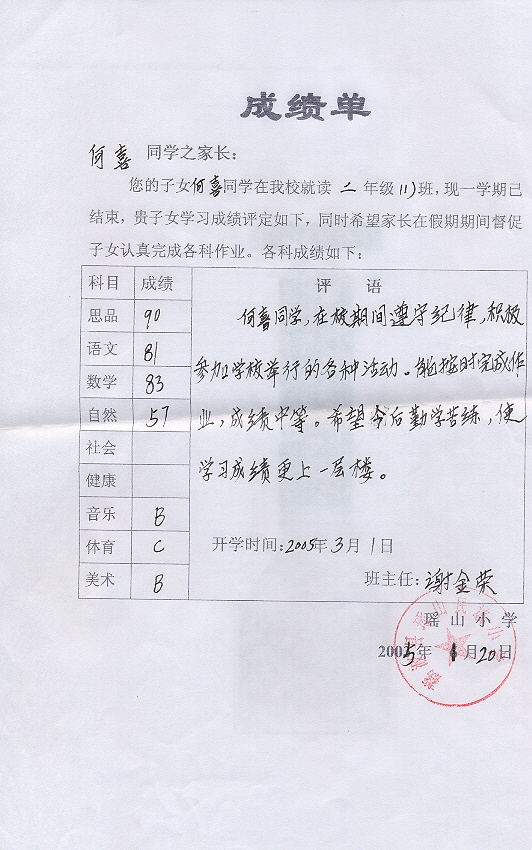 成绩单
何喜 同学之家长：
您的子女何喜同学在我校就读 二 年级(1)班，现一学期已
结束，贵子女学习成绩评定如下，同时希望家长在假期期间督促
子女认真完成各科作业。各科成绩如下：
科目 成绩 评 语
思品 90
语文 81
数学 83
自然 57
社会
健康
音乐 B
体育 C
美术 B
何喜同学，在校期间遵守纪律，积极
参加学校举行的各种活动。能按时完成作
业，成绩中等。希望今后勤学苦练，使
学习成绩更上一层楼。
开学时间：2005年3月1日
班主任：谢金荣
瑶山小学
2005年1月20日